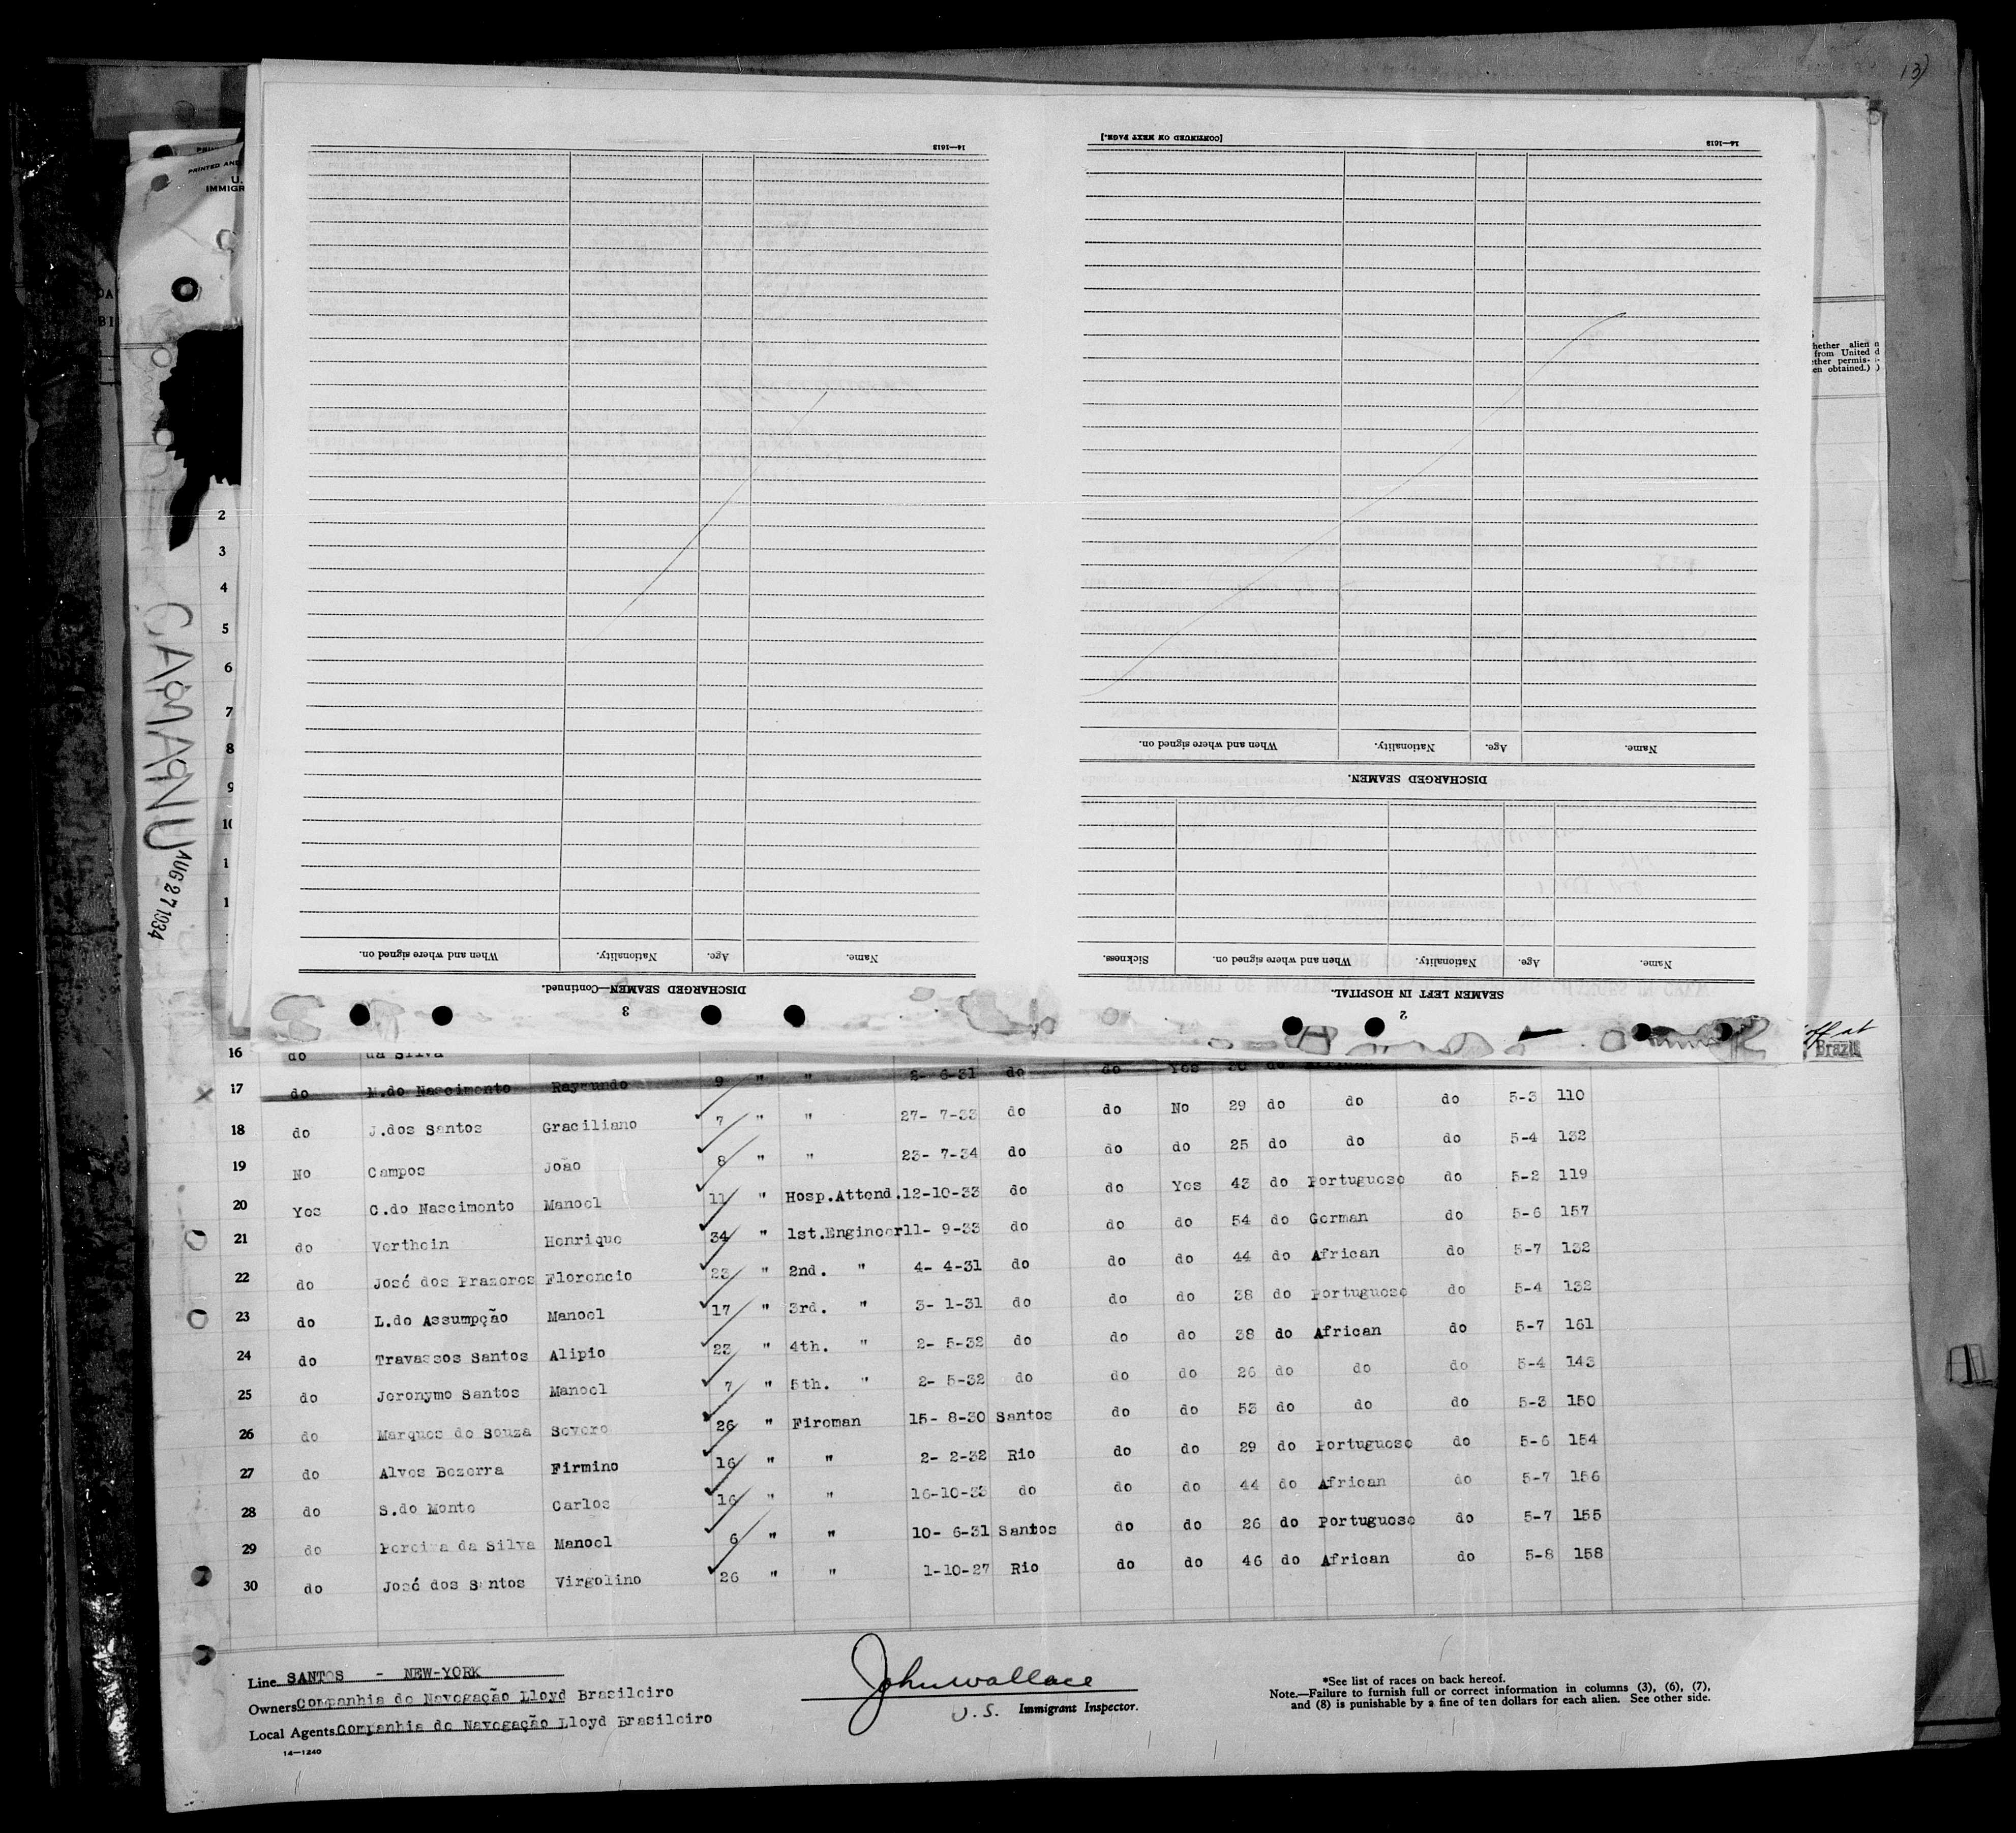 13)
[CONTINUED ON NEXT PAGE.]
14—1613
14—1613
PRINTED AND
U.
IMMIGR
hether alien
from United
ether permis-
en obtained.)
CAMAMU AUG 27 1934
2
3
4
5
6
7
8
9
When and where signed on. Nationality. Age. Name.
DISCHARGED SEAMEN.
Sickness. When and where signed on. Nationality. Age. Name.
SEAMEN LEFT IN HOSPITAL.
2
When and where signed on. Nationality. Age. Name.
DISCHARGED SEAMEN—Continued.
3
off at
Brazil
16 do da Silva
17 do M.do Nascimento Raymundo 9 " " 2- 6-31 do do Yes 30 do
18 do J.dos Santos Graciliano 7 " " 27- 7-33 do do No 29 do do do 5-3 110
19 No Campos João 8 " " 23- 7-34 do do do 25 do do do 5-4 132
20 Yes C.do Nascimento Manoel 11 " Hosp.Attend.12-10-33 do do Yes 43 do Portuguese do 5-2 119
21 do Verthein Henrique 34 " 1st.Engineer11- 9-33 do do do 54 do German do 5-6 157
22 do José dos Prazeres Florencio 23 " 2nd. " 4- 4-31 do do do 44 do African do 5-7 132
23 do L.do Assumpção Manoel 17 " 3rd. " 3- 1-31 do do do 38 do Portuguese do 5-4 132
24 do Travassos Santos Alipio 23 " 4th. " 2- 5-32 do do do 38 do African do 5-7 161
25 do Jeronymo Santos Manoel 7 " 5th. " 2- 5-32 do do do 26 do do do 5-4 143
26 do Marques de Souza Severo 26 " Fireman 15- 8-30 Santos do do 53 do do do 5-3 150
27 do Alves Bezerra Firmino 16 " " 2- 2-32 Rio do do 29 do Portuguese do 5-6 154
28 do S.do Monte Carlos 16 " " 16-10-33 do do do 44 do African do 5-7 156
29 do Pereira da Silva Manoel 6 " " 10- 6-31 Santos do do 26 do Portuguese do 5-7 155
30 do José dos Santos Virgolino 26 " " 1-10-27 Rio do do 46 do African do 5-8 158
Line SANTOS - NEW-YORK
Owners Companhia de Navegação Lloyd Brasileiro
Local Agents Companhia de Navegação Lloyd Brasileiro
14—1240
John Wallace
U.S. Immigrant Inspector.
*See list of races on back hereof.
Note.—Failure to furnish full or correct information in columns (3), (6), (7),
and (8) is punishable by a fine of ten dollars for each alien. See other side.